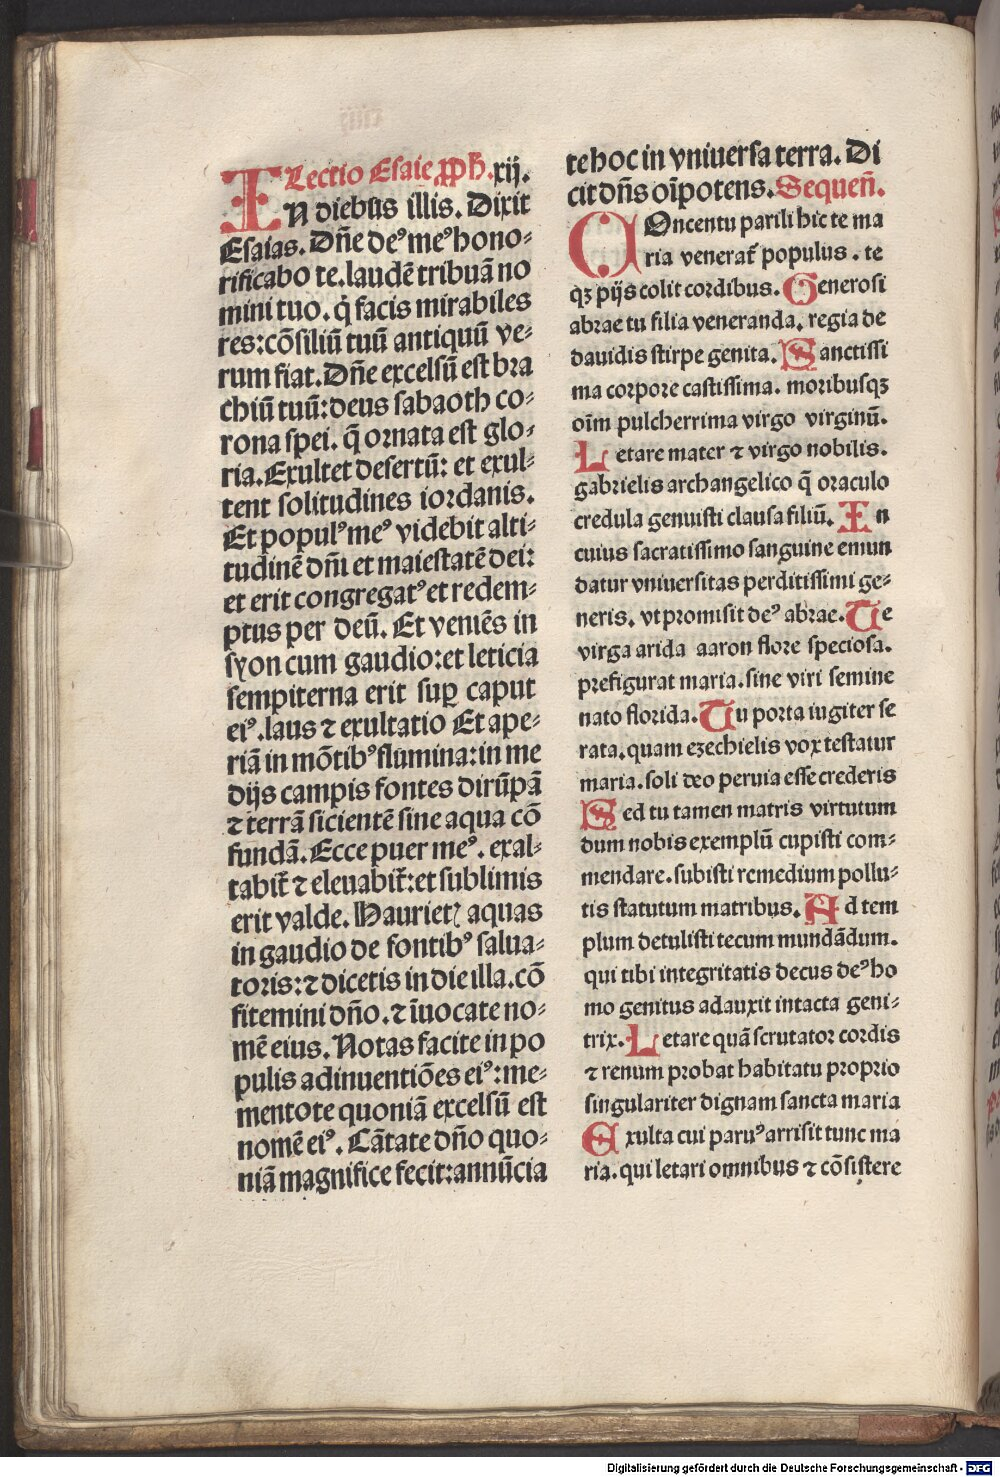 Lectio Esaie ꝓph. xij.
IN diebus illis. Dixit
Esaias. Dñe deꝰ meꝰ hono⸗
rificabo te. laudē tribuā no
mini tuo. q̇ facis mirabiles
res: cōsiliū tuū antiquū ve⸗
rum fiat. Dñe excelsū est bra
chiū tuū: deus sabaoth co⸗
rona spei. q̄ ornata est glo⸗
ria. Exultet desertū: et exul⸗
tent solitudines iordanis.
Et populꝰ meꝰ videbit alti⸗
tudinē dñi et maiestatē dei:
et erit congregatꝰ et redem⸗
ptus per deū. Et veniēs in
syon cum gaudio: et leticia
sempiterna erit suꝑ caput
eiꝰ. laus ⁊ exultatio Et ape⸗
riā in mōtibꝰ flumina: in me
dijs campis fontes dirūpā
⁊ terrā sicientē sine aqua cō
fundā. Ecce puer meꝰ. exal⸗
tabit̄ ⁊ eleuabit̄: et sublimis
erit valde. Haurietꝭ aquas
in gaudio de fontibꝰ salua⸗
toris: ⁊ dicetis in die illa. cō
fitemini dño. ⁊ īuocate no⸗
mē eius. Notas facite in po
pulis adinuentiōes eiꝰ: me⸗
mentote quoniā excelsū est
nomē eiꝰ. Cātate dño quo⸗
niā magnifice fecit: annūcia
te hoc in vniuersa terra. Di
cit dñs oīpotens. Sequeñ.
COncentu parili hic te ma
ria venerat̄ populus. te
qꝫ pijs colit cordibus. Generosi
abrae tu filia veneranda. regia de
dauidis stirpe genita. Sanctissi
ma corpore castissima. moribusqꝫ
oīm pulcherrima virgo virginū.
Letare mater ⁊ virgo nobilis.
gabrielis archangelico q̄ oraculo
credula genuisti clausa filiū. In
cuius sacratissimo sanguine emun
datur vniuersitas perditissimi ge⸗
neris. vt promisit deꝰ abrae. Te
virga arida aaron flore speciosa.
prefigurat maria. sine viri semine
nato florida. Tu porta iugiter se
rata. quam ezechielis vox testatur
maria. soli deo peruia esse crederis
Sed tu tamen matris virtutum
dum nobis exemplū cupisti com⸗
mendare. subisti remedium pollu⸗
tis statutum matribus. Ad tem
plum detulisti tecum mundādum.
qui tibi integritatis decus deꝰ ho
mo genitus adauxit intacta geni⸗
trix. Letare quā scrutator cordis
⁊ renum probat habitatu proprio
singulariter dignam sancta maria
Exulta cui paruꝰ arrisit tunc ma
ria. qui letari omnibus ⁊ cōsistere
Digitalisierung gefördert durch die Deutsche Forschungsgemeinschaft - DFG